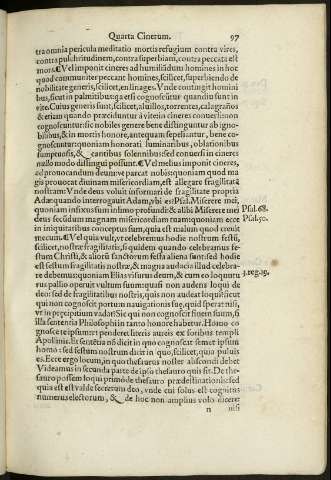 Quarta Cinerum. 97
tra omnia pericula meditatio mortis refugium contra vires,
contra pulchritudinem, contra superbiam, contra peccata est
mors. Vel imponit cineres ad humiliãdum homines in hoc
quod communiter peccant homines, scilicet, superbiendo de
nobilitate generis, scilicet, en linages. Vnde contingit homini
bus, sicut in palmitibus: qa etsi cognoscuntur quando sunt in
vite. Cuius generis sunt, scilicet, aluillos, torrentes, calagraños
& etiam quando præciduntur à vite in cineres conuersi non
cognoscuntur: sic nobiles genere bene distinguntur ab igno-
bilibus, & in morte honore, antequam sepeliantur, bene co-
gnoscuntur: quoniam honorati luminaribus, oblationibus
sumptuosis, & cantibus solennibus: sed conuersi in cineres
nullo modo distingui possunt. Vel melius imponit cineres,
ad prouocandum deum: vt parcat nobis: quoniam quod ma
gis prouocat diuinam misericordiam, est allegare fragilitatẽ
nostram: Vnde deus voluit informari de fragilitate propria
Adæ: quando interrogauit Adam, vbi es: Psal. Miserere mei,
quoniam infixus sum in limo profundi: & alibi Miserere mei Psal. 68.
deus secũdum magnam misericordiam tuam: quoniam ecce Psal. 50.
in iniquitatibus conceptus sum, quia est malum quod creuit
mecum. Vel quia vult, vt celebremus hodie nostrum festũ,
scilicet, nostræ fragilitatis, siquidem quando celebramus fe-
stum Christi, & aliorũ sanctorum festa aliena sunt: sed hodie
est festum fragilitatis nostræ, & magna audacia illud celebra-
re debemus: quoniam Elias visurus deum, & cum eo loquutu 3. reg. 19.
rus pallio operuit vultum suum: quasi non audens loqui de
deo: sed de fragilitatibus nostris, quis non audeat loqui: sicut
qui non cognoscit portum nauigationis suæ, quid sperat nisi,
vt in præcipitium vadat? Sic qui non cognoscit finem suum, si
illa sententia Philosophi in tanto honore habetur. Homo co
gnosce teipsum: vt penderet literis aureis ex foribus templi
Apollinis. Et sentẽtia nõ dicit in quo cognoscat semet ipsum
homo: sed festum nostrum dicit in quo, scilicet, quia puluis
es. Ecce ergo locum, in quo thesaurus noster abscondi debet
Videamus in secunda parte de ipso thesauro quis sit. De the-
sauro possem loqui primò de thesauro prædestinationis: sed
quia est est valde secretum deo, vnde cui solus est cognitus
numerus electorum, & de hoc non amplius volo dicere
n nisi